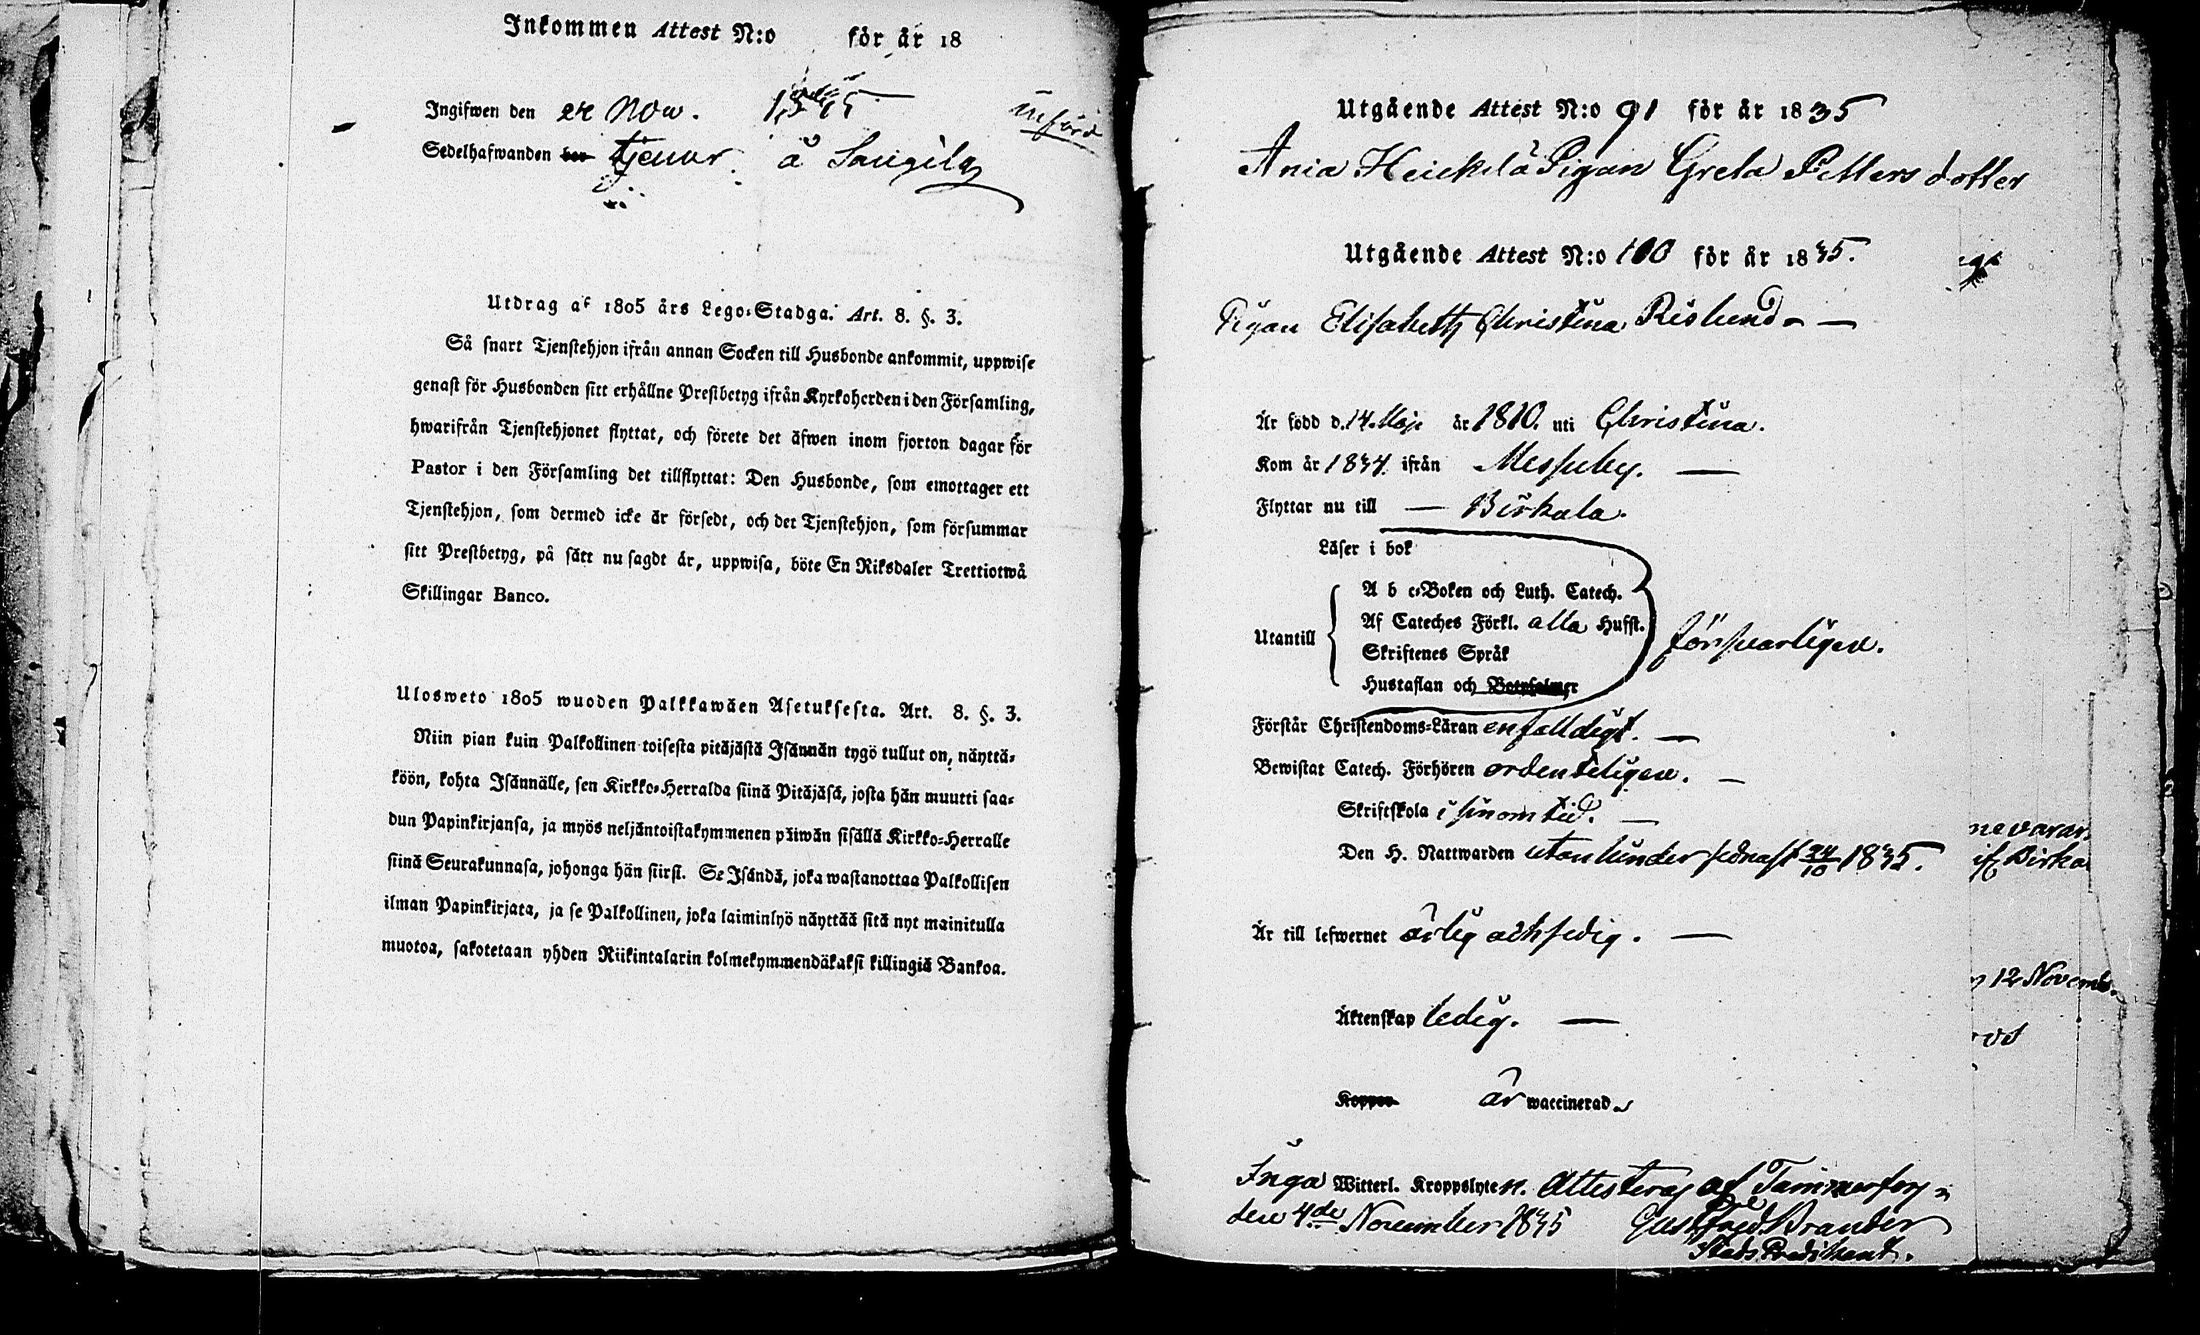 Inkommen Attest N:o för år 18
Ingifwen den 22 Now. 1835
införd
Sedelhafwanden bor tjenar å Saugila
Utdrag af 1805 års Lego-Stadga. Art. 8. §. 3.
Så snart Tjenstehjon ifrån annan Socken till Husbonde ankommit, uppwise
genast för Husbonden sitt erhållne Prestbetyg ifrån Kyrkoherden i den Församling,
hwarifrån Tjenstehjonet flyttat, och förete det äfwen inom fjorton dagar för
Pastor i den Församling det tillflyttat: Den Husbonde, som emottager ett
Tjenstehjon, som dermed icke är försedt, och det Tjenstehjon, som försummar
sitt Prestbetyg, på sätt nu sagdt är, uppwisa, böte En Riksdaler Trettiotwå
Skillingar Banco.
Ulosweto 1805 wuoden Palkkawäen Asetuksesta. Art. 8. §. 3.
Niin pian kuin Palkollinen toisesta pitäjästä Isännän tygö tullut on, näyttä-
köön, kohta Isännälle, sen Kirkko-Herralda siinä Pitäjäsä, josta hän muutti saa-
dun Papinkirjansa, ja myös neljäntoistakymmenen päiwän sisällä Kirkko-Herralle
siinä Seurakunnasa, johonga hän siirsi. Se Isändä, joka wastanottaa Palkollisen
ilman Papinkirjata, ja se Palkollinen, joka laiminlyö näyttää sitä nyt mainitulla
muotoa, sakotetaan yhden Riikintalarin kolmekymmendäkaksi killingiä Bankoa.
Utgående Attest N:o 91 för år 1835
Ania Heickilä Pigan Greta Petters dotter
Utgående Attest N:o 100 för år 1835.
Pigan Elisabeth Christina Rislund
Är född d. 14 Maji år 1810. uti Christina.
Kom år 1834 ifrån Messuby.
Flyttar nu till Birkala.
Läser i bok
A b c-Boken och Luth. Catech.
Af Cateches Förkl. alla Hufst.
Utantill
försvarligen.
Skriftenes Språk
Hustaflan och Botpsalmer
Förstår Christendoms-Läran enfaldigt.
Bewistat Catech. Förhören ordenteligen.
Skriftskola i sinom tid.
Den H. Nattwarden utan hinder sednast 24/10 1835.
Är till lefwernet ärlig och sedig.
Äktenskap ledig.
Koppor är waccinerad.
Inga Witterl. Kroppslyten. Attesteras af Tammerfors
den 4de November 1835 Gust. Fred. Brander
Stads Predikant.
Birka
12 Novemb.